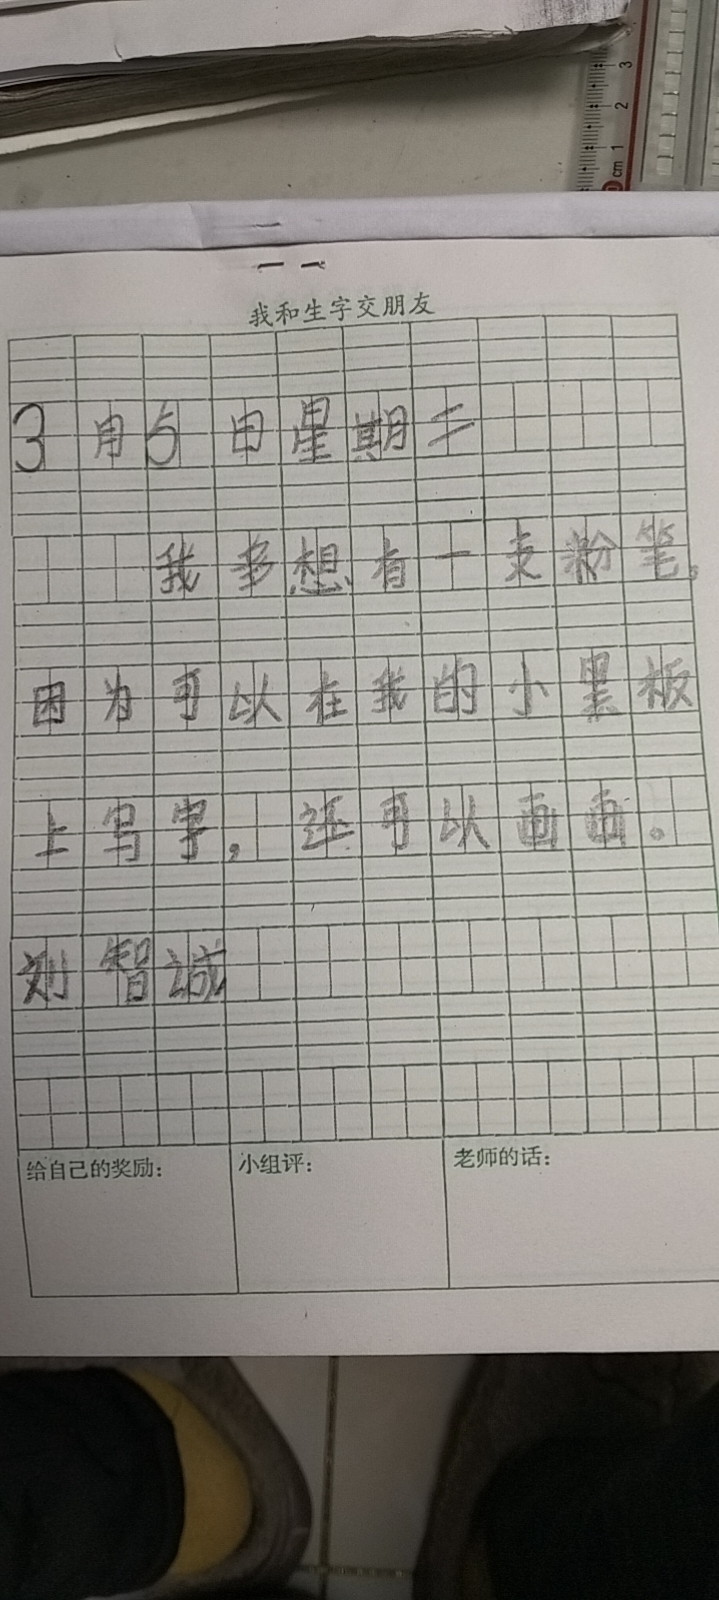 3
2
1
0 cm
我和生字交朋友
3月5日星期二
我多想有一支粉笔。
因为可以在我的小黑板
上写字，还可以画画。
刘智诚
给自己的奖励：
小组评：
老师的话：